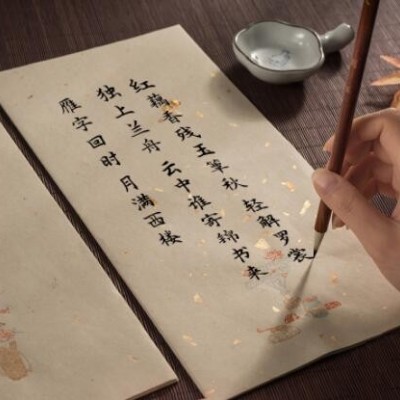 红藕香残玉簟秋 轻解罗裳
独上兰舟 云中谁寄锦书来
雁字回时 月满西楼